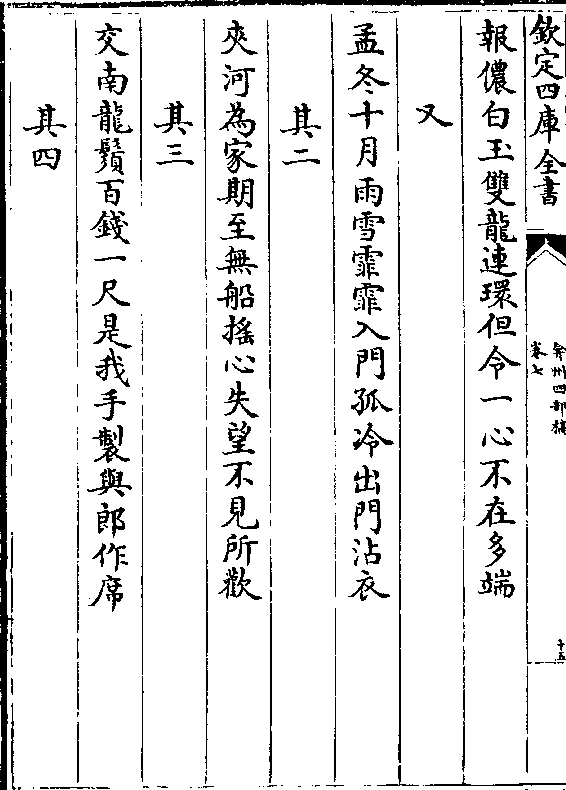 欽定四庫全書
弇州四部稿
卷七
十五
報儂白玉雙龍連環但令一心不在多端
又
孟冬十月雨雪霏霏入門孤冷出門沾衣
其二
夾河為家期至無船搖心失望不見所歡
其三
交南龍鬚百錢一尺是我手製與郎作席
其四